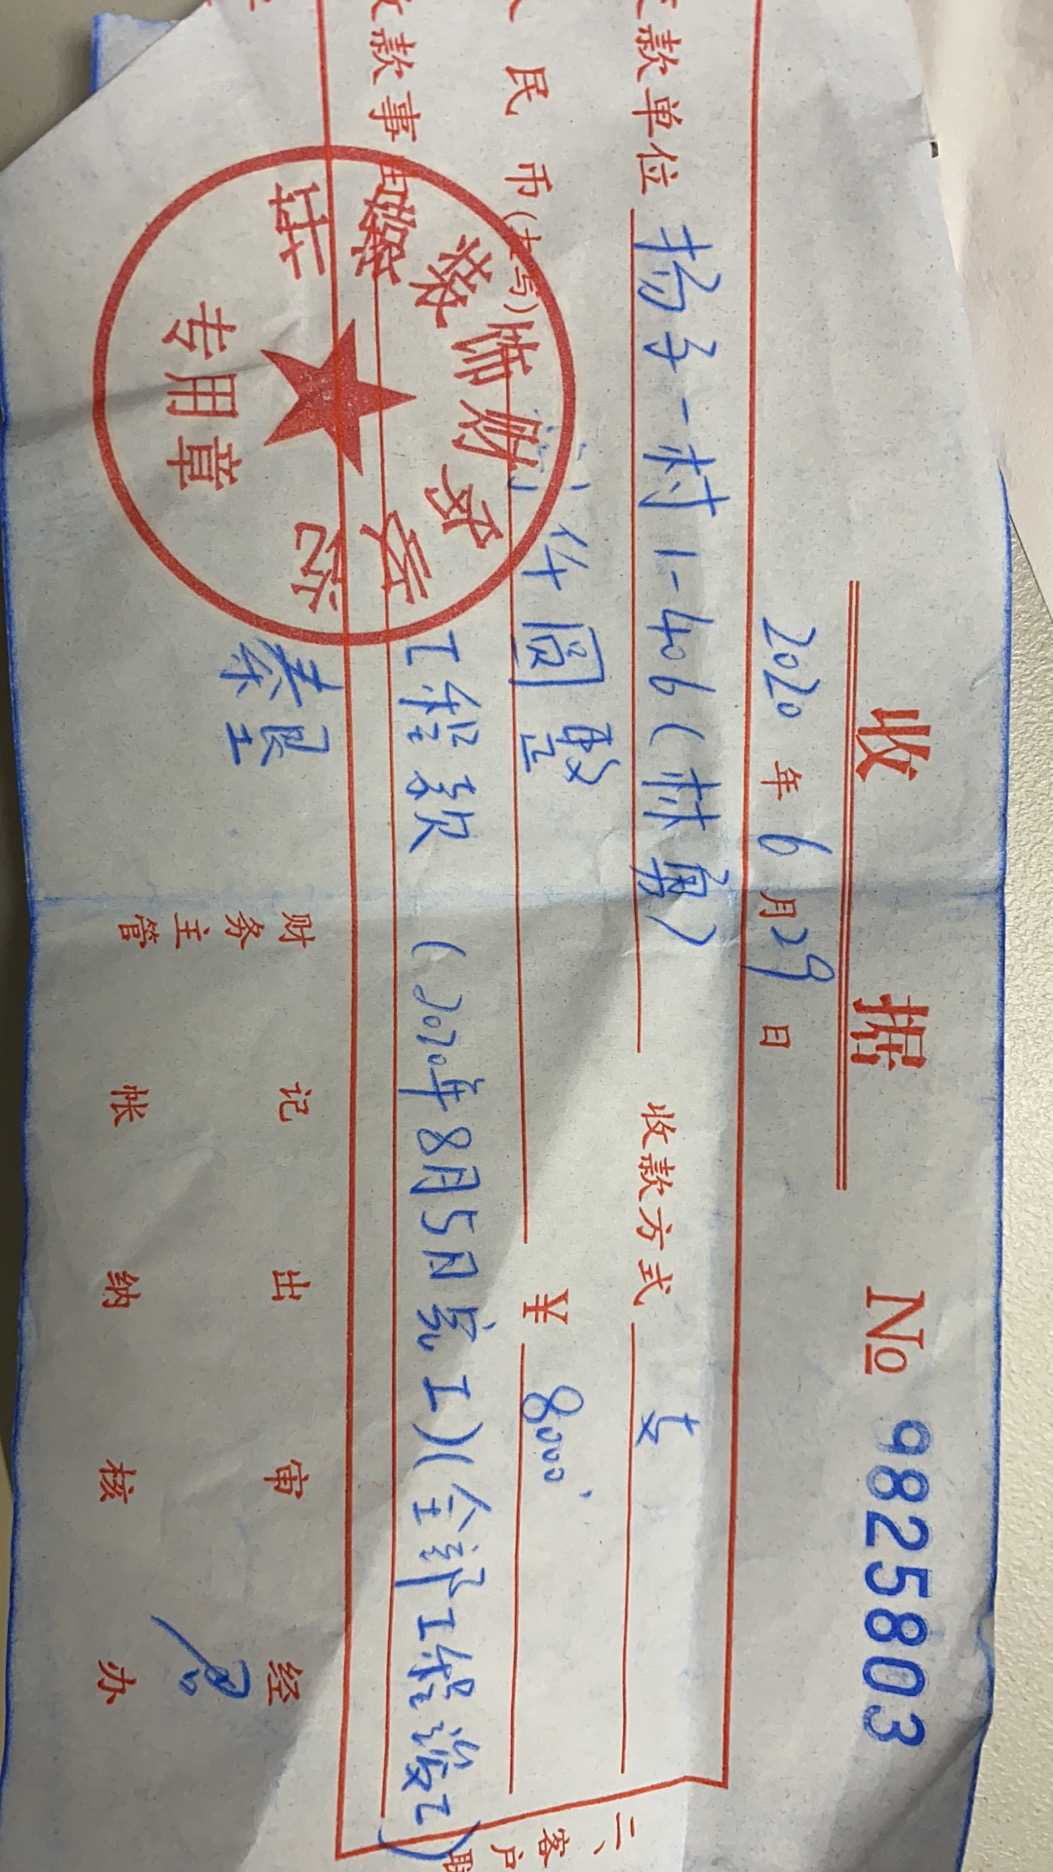 收 据 № 9825803
2020 年 6 月 29 日
款单位 扬子一村1-406(林勇) 收款方式
民 币(大写) 仟圆整 ¥ 8000
款事由 工程款 (2020年8月5日完工)(全部工程竣工)
装饰财务
专用章
财务主管 记帐 出纳 审核 经办
二、客户